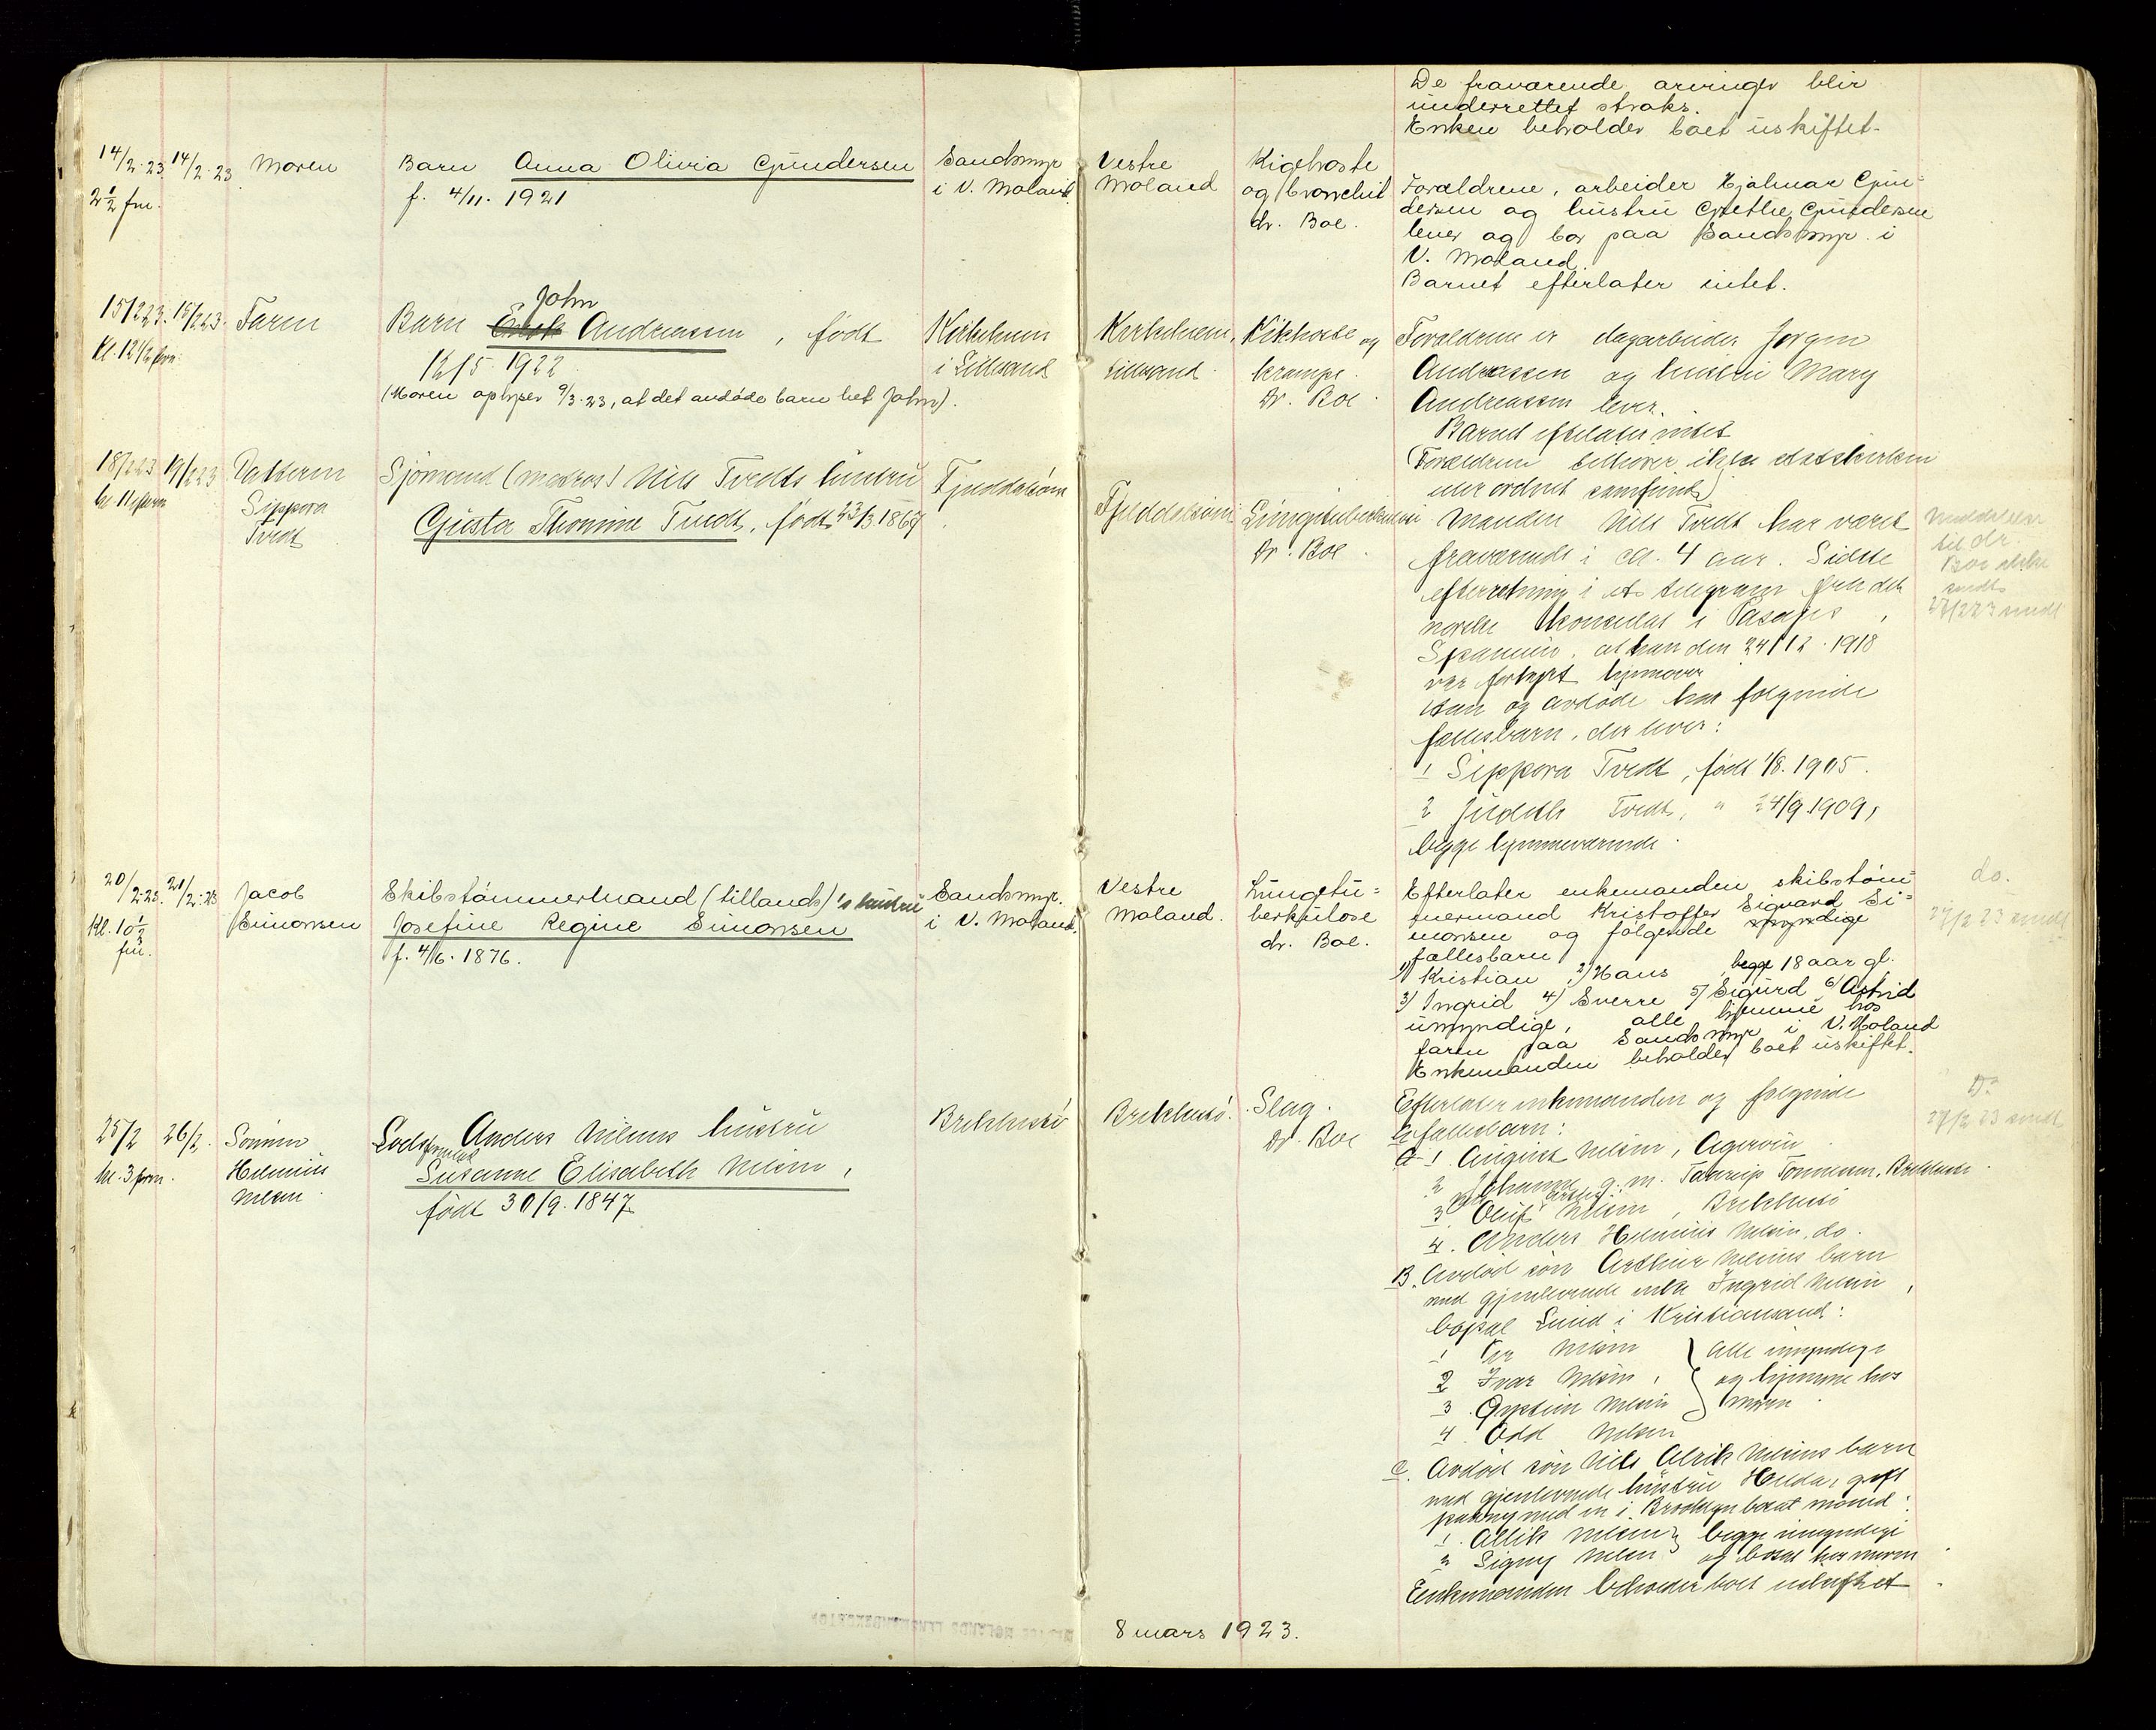 De fraværende arvinger blir
underrettet straks.
Enken beholder boet uskiftet.
14/2.23 14/2.23 Moren Barn Anna Olivia Gundersen Sandsmyr Vestre Kigehoste
2 1/2 fm. f. 4/11. 1921 i V. Moland Moland og bronchit
dr. Boe.
Forældrene, arbeider Hjalmar Gun-
dersen og hustru Grethe Gundersen
lever og bor paa Sandsmyr i
V. Moland.
Barnet efterlater intet.
John
15/2 23. 15/2 23. Faren Barn Andreassen, født Kirkeheien Kirkeheien, Kikhoste og
Kl. 12 1/2 fm. 1922 i Lillesand Lillesand krampe.
(Moren oplyser 9/3.23, at det avdøde barn het John). Dr. Boe.
Forældrene er dagarbeider Jørgen
Andreassen og hustru Mary
Andreassen lever.
Barnet efterlater intet
(Forældrene tilhører ikke statskirken
eller ordnet samfund)
18/2 23 19/2 23 Datteren Sjömand (matros) Nils Tvedts hustru Fjelddalsøen Fjelddalsøen Lungetuberkulose
kl. 11 Sippora Gusta Thomine Tvedt, født 23/3 1867 Dr. Boe.
Tvedt
Manden Nils Tvedt har været
fraværende i ca. 4 aar. Sidste
efterretning i et telegram fra det
norske konsulat i Pasajes,
Spanien, at han den 24/12. 1918
var forhyrt hjemover
Han og avdøde har følgende
fellesbarn, der lever:
1 Sippora Tvedt, født 1/8. 1905.
2 Judith Tvedt, " 24/9 1909,
begge hjemmeværende.
Meddelelse
til dr
Boe ikke
sendt
27/2 23 sendt
20/2.23. 21/2.23 Jacob Skibstømmermand (tillands)'s hustru Sandsmyr. Vestre Lungetu-
Kl. 10 1/2 Simonsen Josefine Regine Simonsen i V. Moland. Moland. berkulose
fm. f. 4/6. 1876. dr. Boe.
Efterlater enkemanden skibstøm-
mermand Kristoffer Sigvard Si-
monsen og følgende
fællesbarn
1) Kristian 2) Hans, begge 18 aar gl.
3) Ingrid 4) Sverre 5) Sigurd 6) Astrid
umyndige, alle hjemme hos
faren paa Sandsmyr i V. Moland
Enkemanden beholder boet uskiftet.
do.
27/2 23 sendt
25/2 26/2. Sønnen Lods Anders Nilsens hustru Brekkestø Brekkestø. Slag.
kl. 3 fm. Helenius Susanne Elisabeth Nilsen, Dr. Boe
Nilsen født 30/9. 1847
Efterlater enkemanden og følgende
fællesbarn:
A 1. August Nilsen, Agerøen
2 Johanne g. m. Tallerup Tønnesen, Brekkestø.
3 Oluf Nilsen, Brekkestø
4. Anders Helenius Nilsen, do.
B. Avdød søn Arthur Nilsens barn
med gjenlevende enke Ingrid Nilsen,
bopæl Lund i Kristiansand:
1 Per Nilsen alle umyndige
2 Ivar Nilsen, og hjemme hos
3. Øystein Nilsen moren.
4. Odd Nilsen
C. Avdød søn Nils Alrik Nilsens barn
med gjenlevende hustru Hilda, gift
paany med en i Brooklyn bosat mand:
1. Alrik Nilsen begge umyndige
2 Signy Nilsen og bosat hos moren
Enkemanden beholder boet uskiftet.
Do
27/2 23 sendt
8 mars 1923.